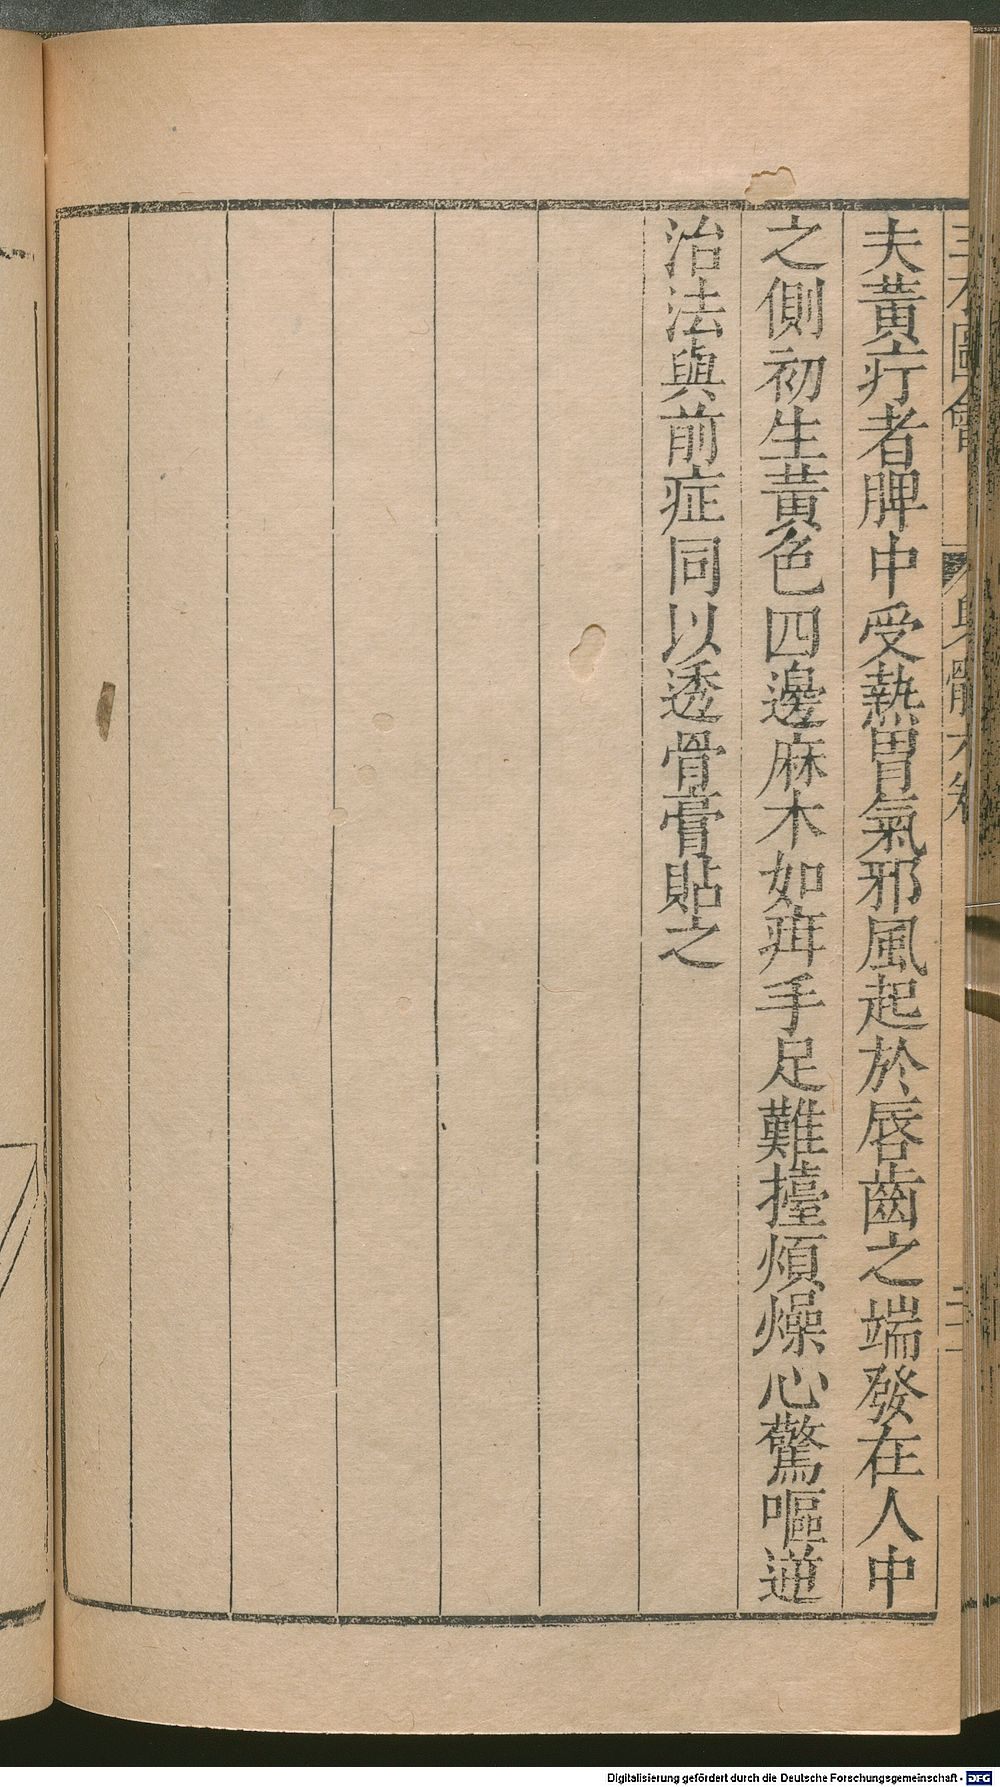 三才圖會 身體六卷 二十一
夫黃疔者脾中受熱胃氣邪風起於唇齒之端發在人中
之側初生黃色四邊麻木如痺手足難擡煩燥心驚嘔逆
治法與前症同以透骨膏貼之
Digitalisierung gefördert durch die Deutsche Forschungsgemeinschaft - DFG